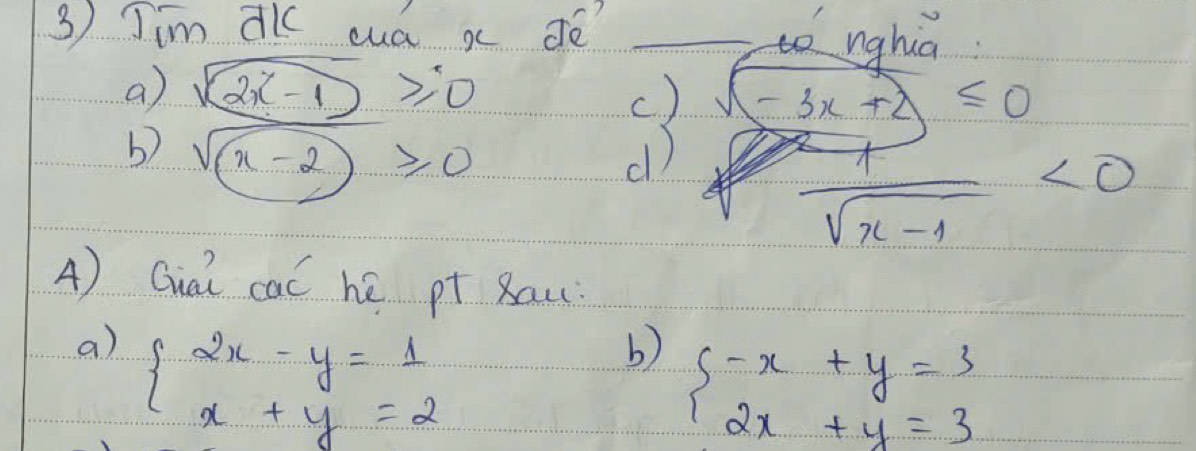 3) Tìm ĐK của x để ___ có nghĩa:
a) √(2x - 1) ≥ 0
c) √(-3x + 2) ≤ 0
b) √(x - 2) ≥ 0
d) 1/√(x - 1) < 0
4) Giải các hệ pt sau:
a) { 2x - y = 1
b) { -x + y = 3
x + y = 2
2x + y = 3